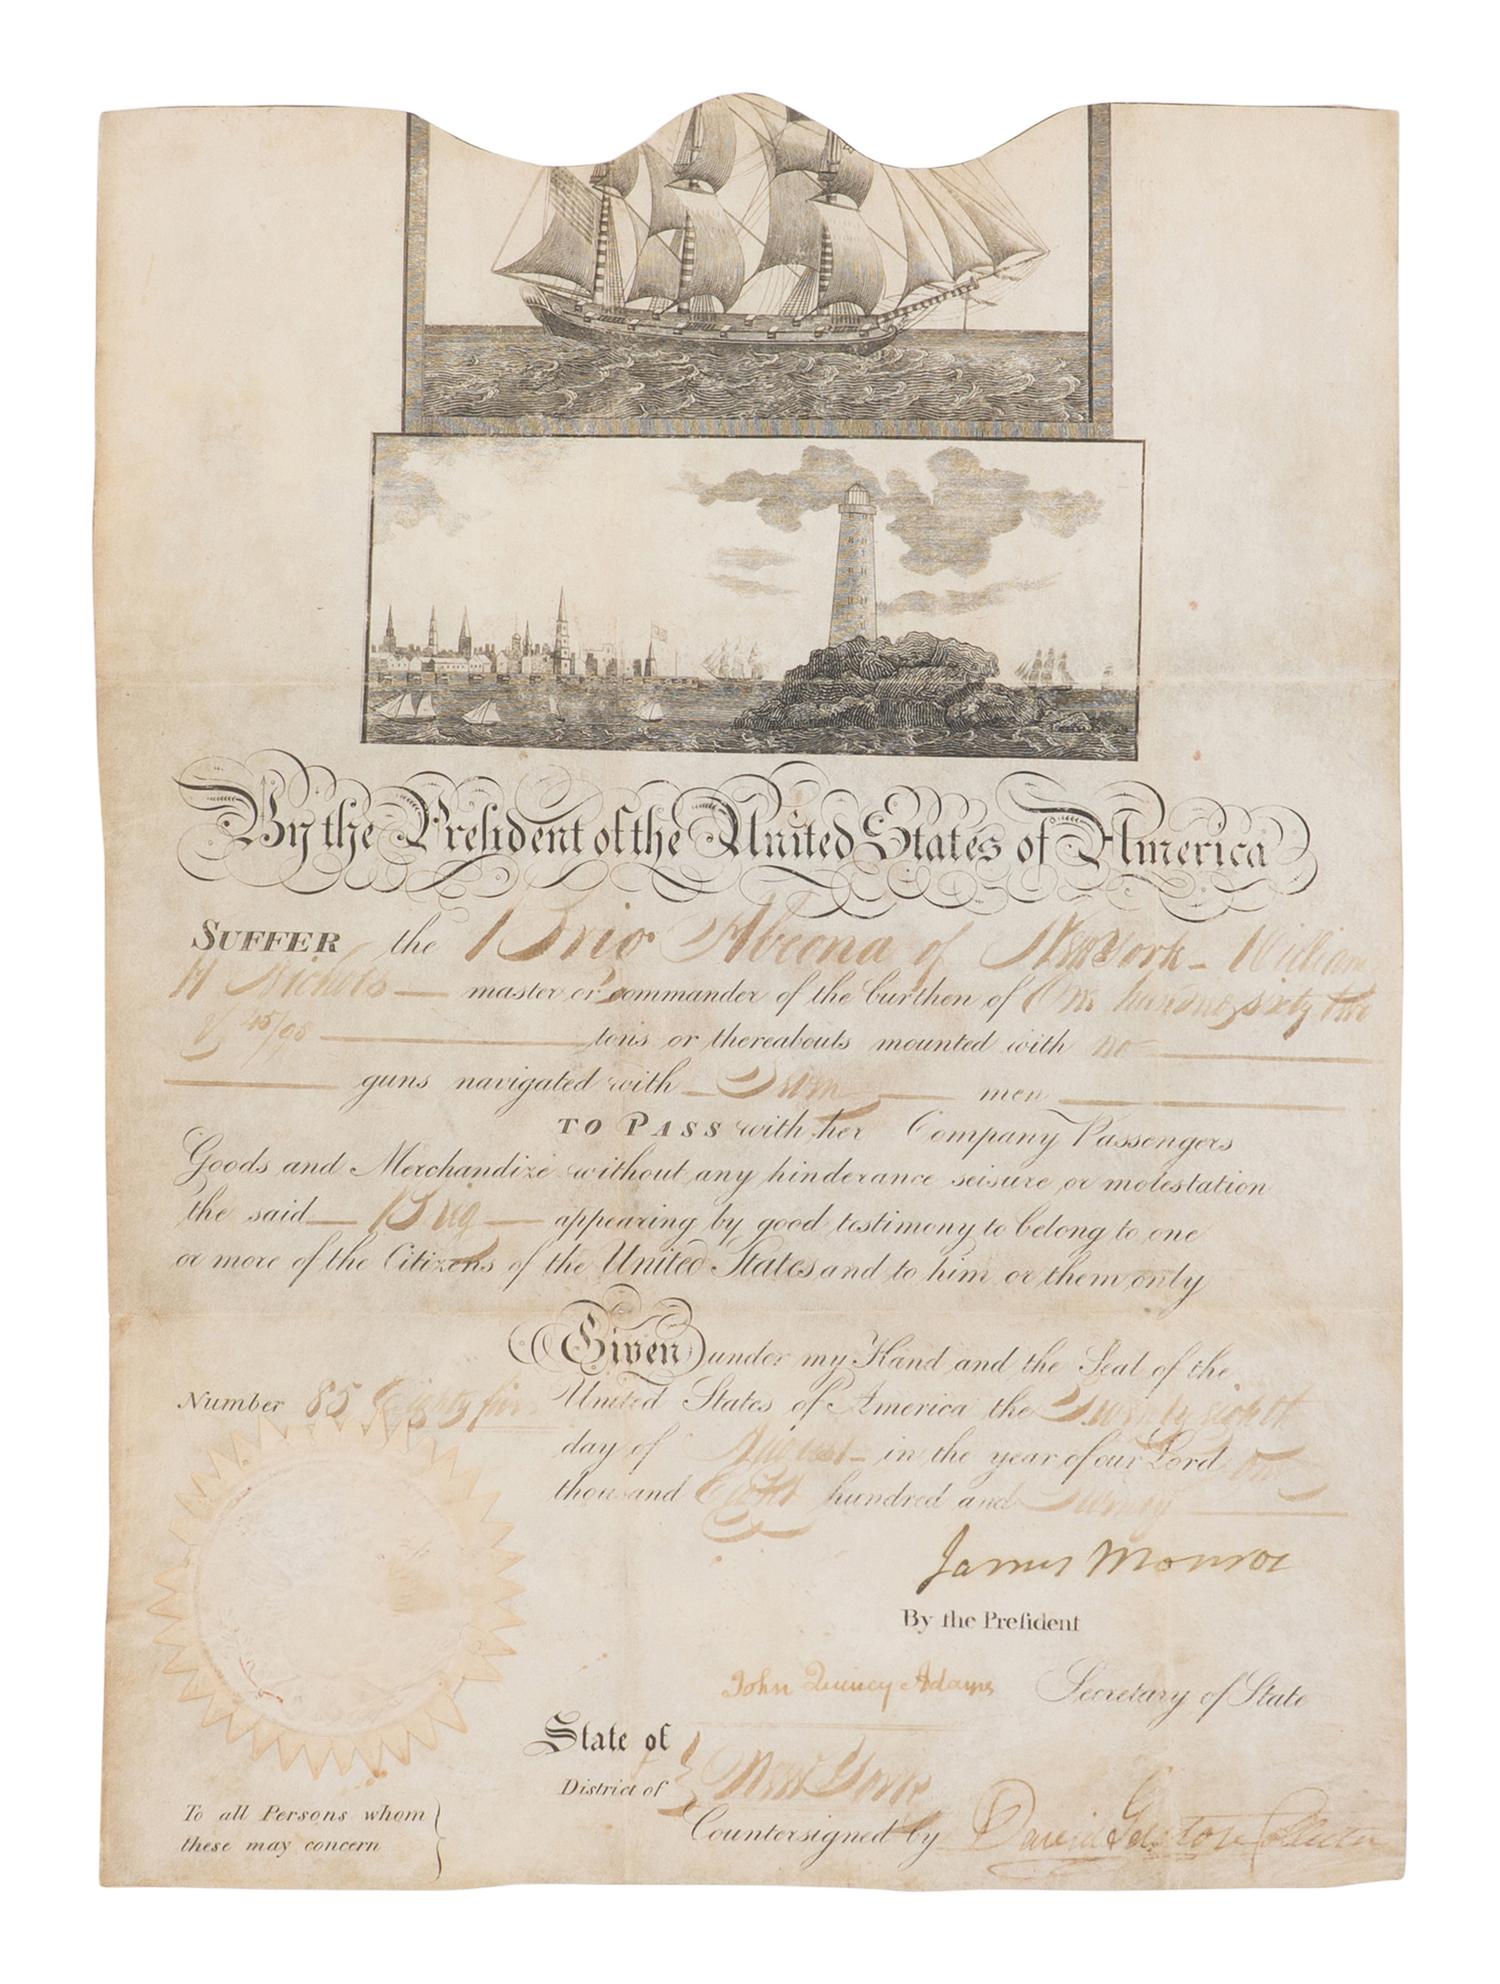 By the President of the United States of America
SUFFER the Brig Abeona of New York - William
H Nichols master or commander of the burthen of One hundred sixty two
45/95 tons or thereabouts mounted with no
guns navigated with Seven men
TO PASS with her Company Passengers
Goods and Merchandize without any hinderance seisure or molestation
the said Brig appearing by good testimony to belong to one
or more of the Citizens of the United States and to him or them only
Given under my Hand and the Seal of the
Number 85 Eighty five United States of America the Twenty eighth
day of August in the year of our Lord one
thousand Eight hundred and Twenty
James Monroe
By the President
John Quincy Adams Secretary of State
State of
District of } New York
Countersigned by David Gelston Collector
To all Persons whom
these may concern }